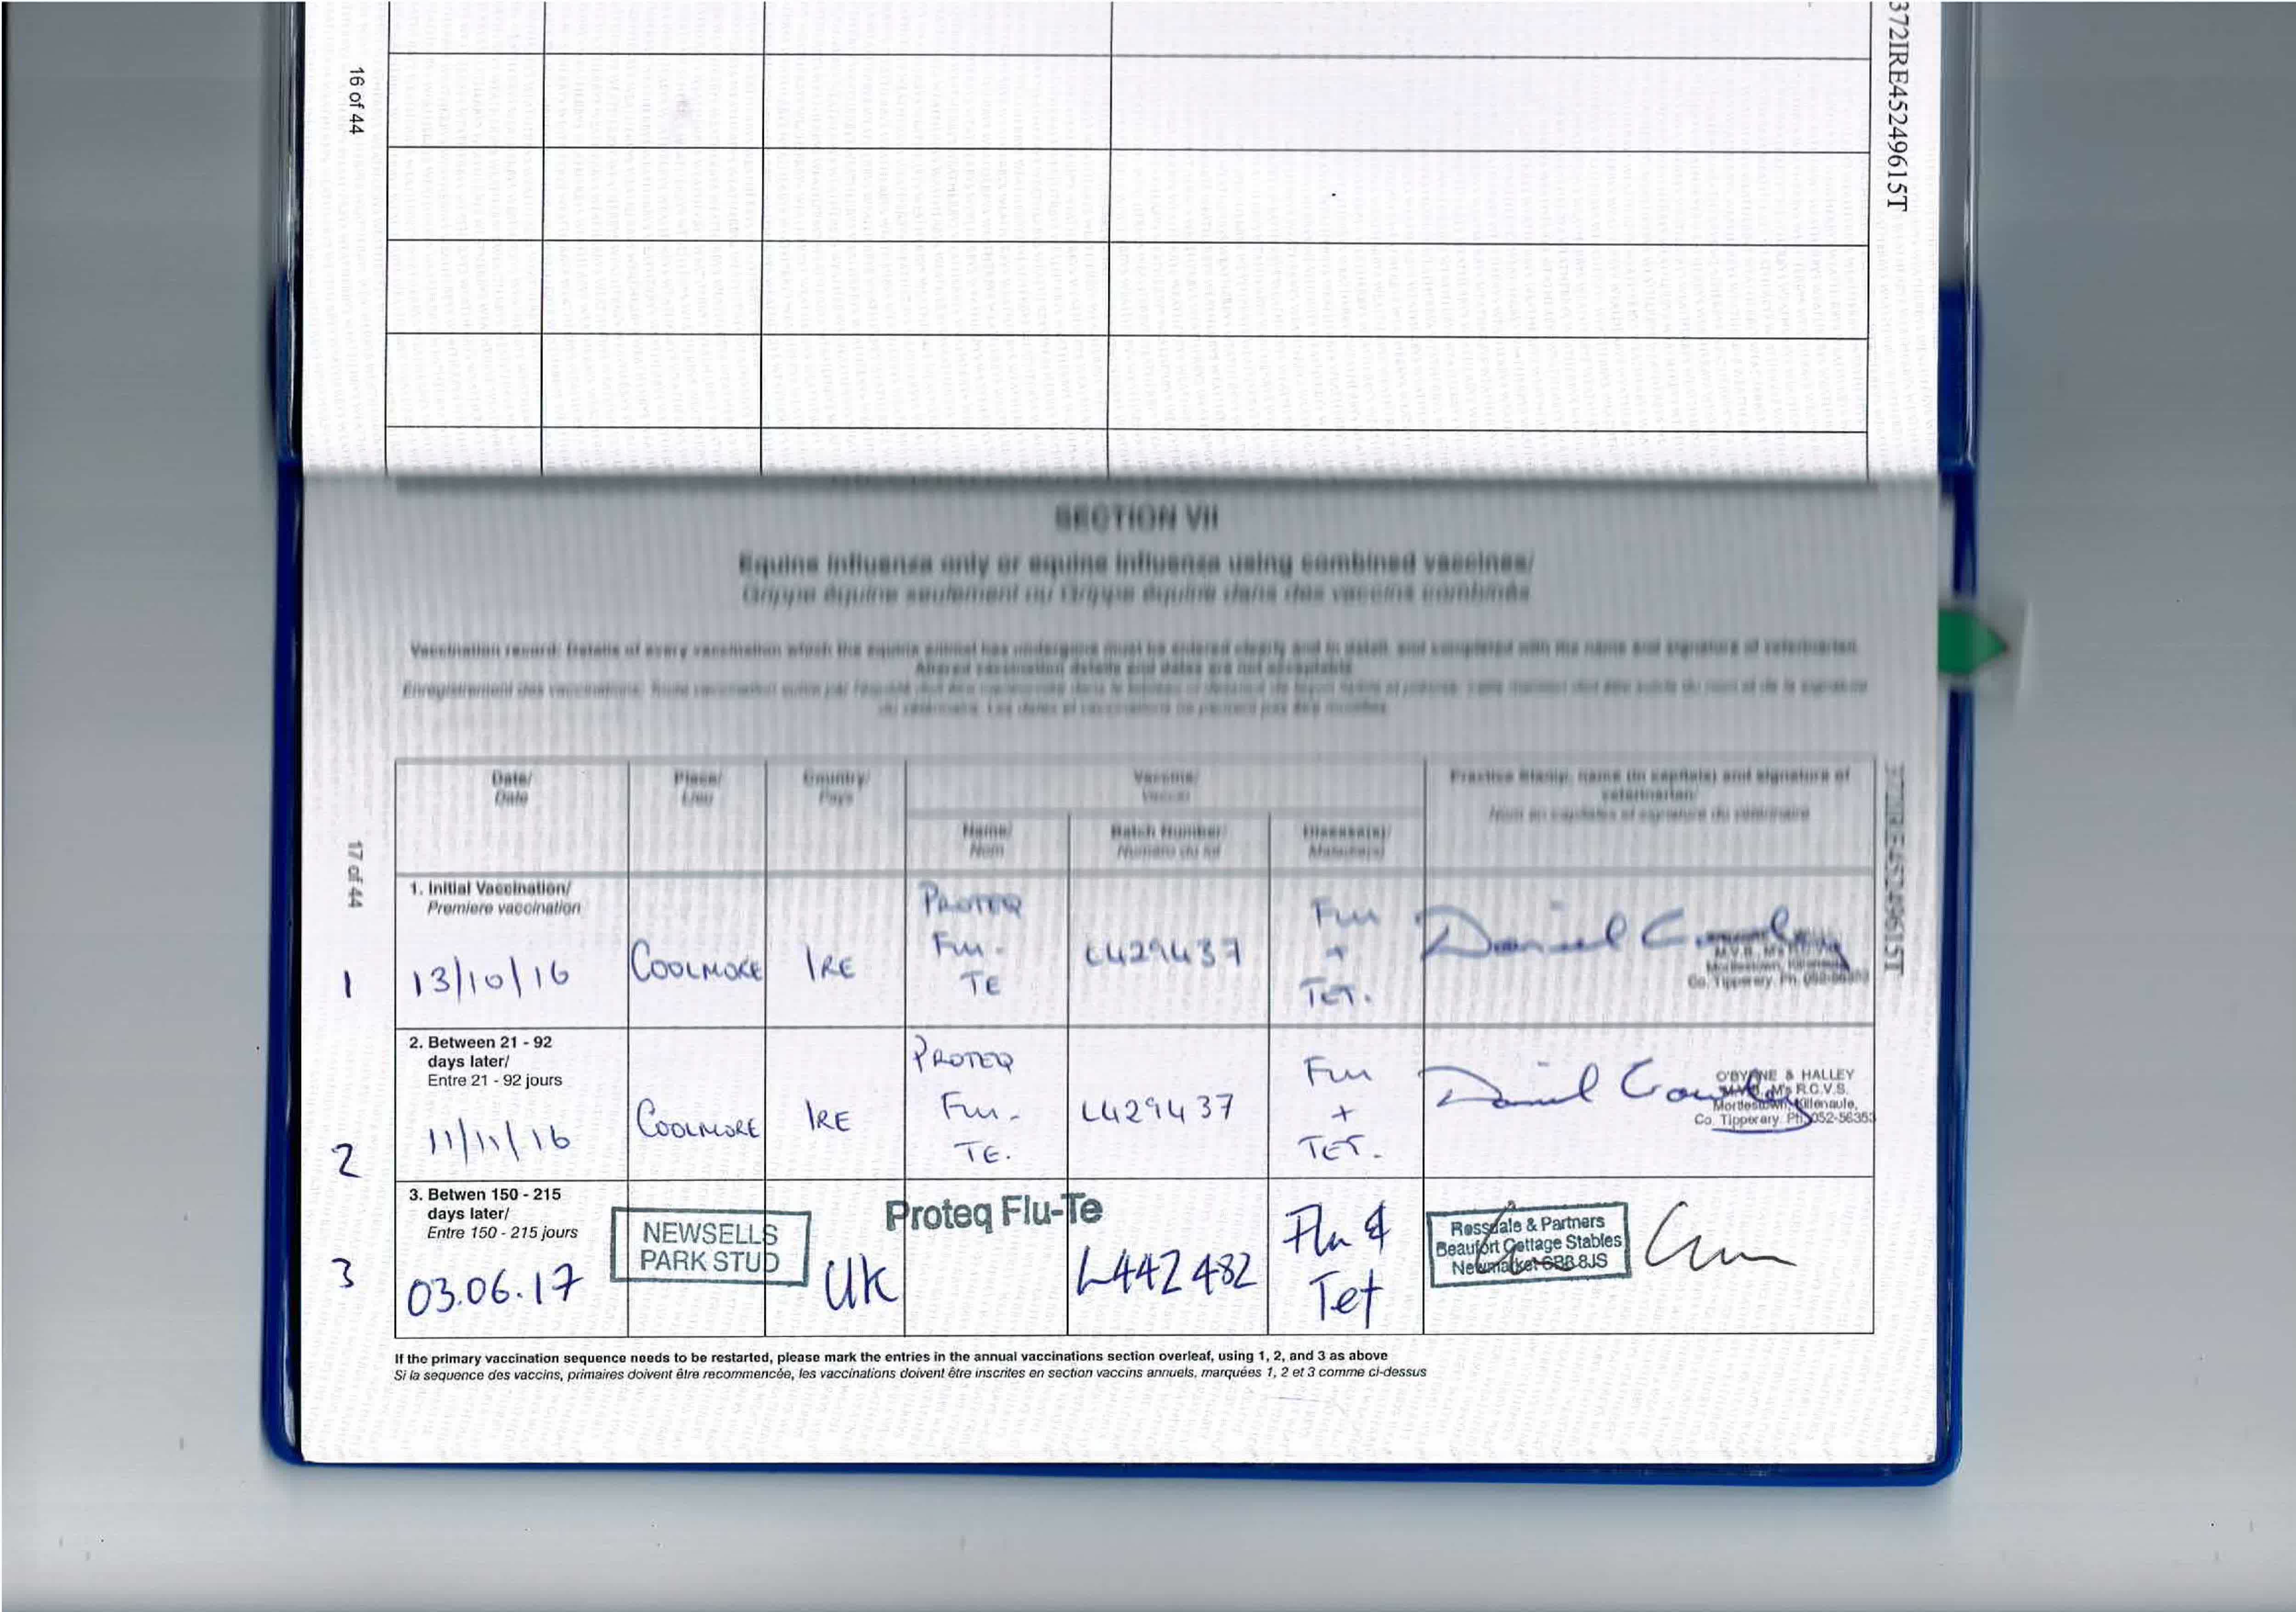 16 of 44
372IRE45249615T
SECTION VII
Equine influenza only or equine influenza using combined vaccines/
Grippe équine seulement ou Grippe équine dans des vaccins combinés
Vaccination record: Details of every vaccination which the equine animal has undergone must be entered clearly and in detail, and completed with the name and signature of veterinarian.
Altered vaccination details and dates are not acceptable
Enregistrement des vaccinations:
Date/
Date
Place/
Lieu
Country/
Pays
Vaccine/
Vaccin
Name/
Nom
Batch Number/
Numéro du lot
Disease(s)/
Maladie(s)
Practice Stamp, name (in capitals) and signature of
veterinarian/
Nom en capitales et signature du vétérinaire
17 of 44
372IRE45249615T
1. Initial Vaccination/
Premiere vaccination
1
13/10/16
COOLMORE
IRE
PROTEQ
FLU-
TE
L429437
FLU
+
TET.
Daniel Crowley
Co. Tipperary. Ph.
2. Between 21 - 92
days later/
Entre 21 - 92 jours
2
11/11/16
COOLMORE
IRE
PROTEQ
FLU-
TE.
L429437
FLU
+
TET.
Daniel Crowley
O'BYRNE & HALLEY
M.V.B. M's R.C.V.S.
Mortlestown, Killenaule,
Co. Tipperary. Ph. 052-56353
3. Betwen 150 - 215
days later/
Entre 150 - 215 jours
3
03.06.17
NEWSELLS
PARK STUD
UK
Proteq Flu-Te
L442482
Flu &
Tet
Rossdale & Partners
Beaufort Cottage Stables
Newmarket CB8 8JS
If the primary vaccination sequence needs to be restarted, please mark the entries in the annual vaccinations section overleaf, using 1, 2, and 3 as above
Si la sequence des vaccins, primaires doivent être recommencée, les vaccinations doivent être inscrites en section vaccins annuels, marquées 1, 2 et 3 comme ci-dessus